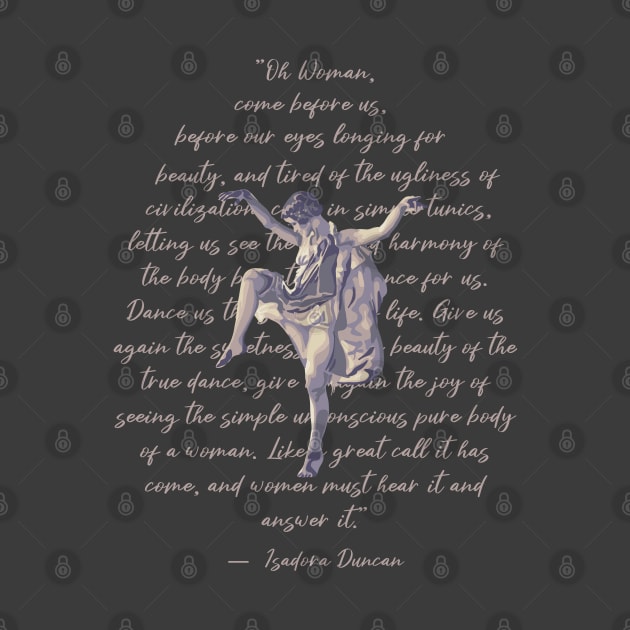 "Oh Woman,
come before us,
before our eyes longing for
beauty, and tired of the ugliness of
civilization in simple tunics,
letting us see the harmony of
the body for us.
Dance us life. Give us
again the beauty of the
true dance, give again the joy of
seeing the simple unconscious pure body
of a woman. Like a great call it has
come, and women must hear it and
answer it."
— Isadora Duncan